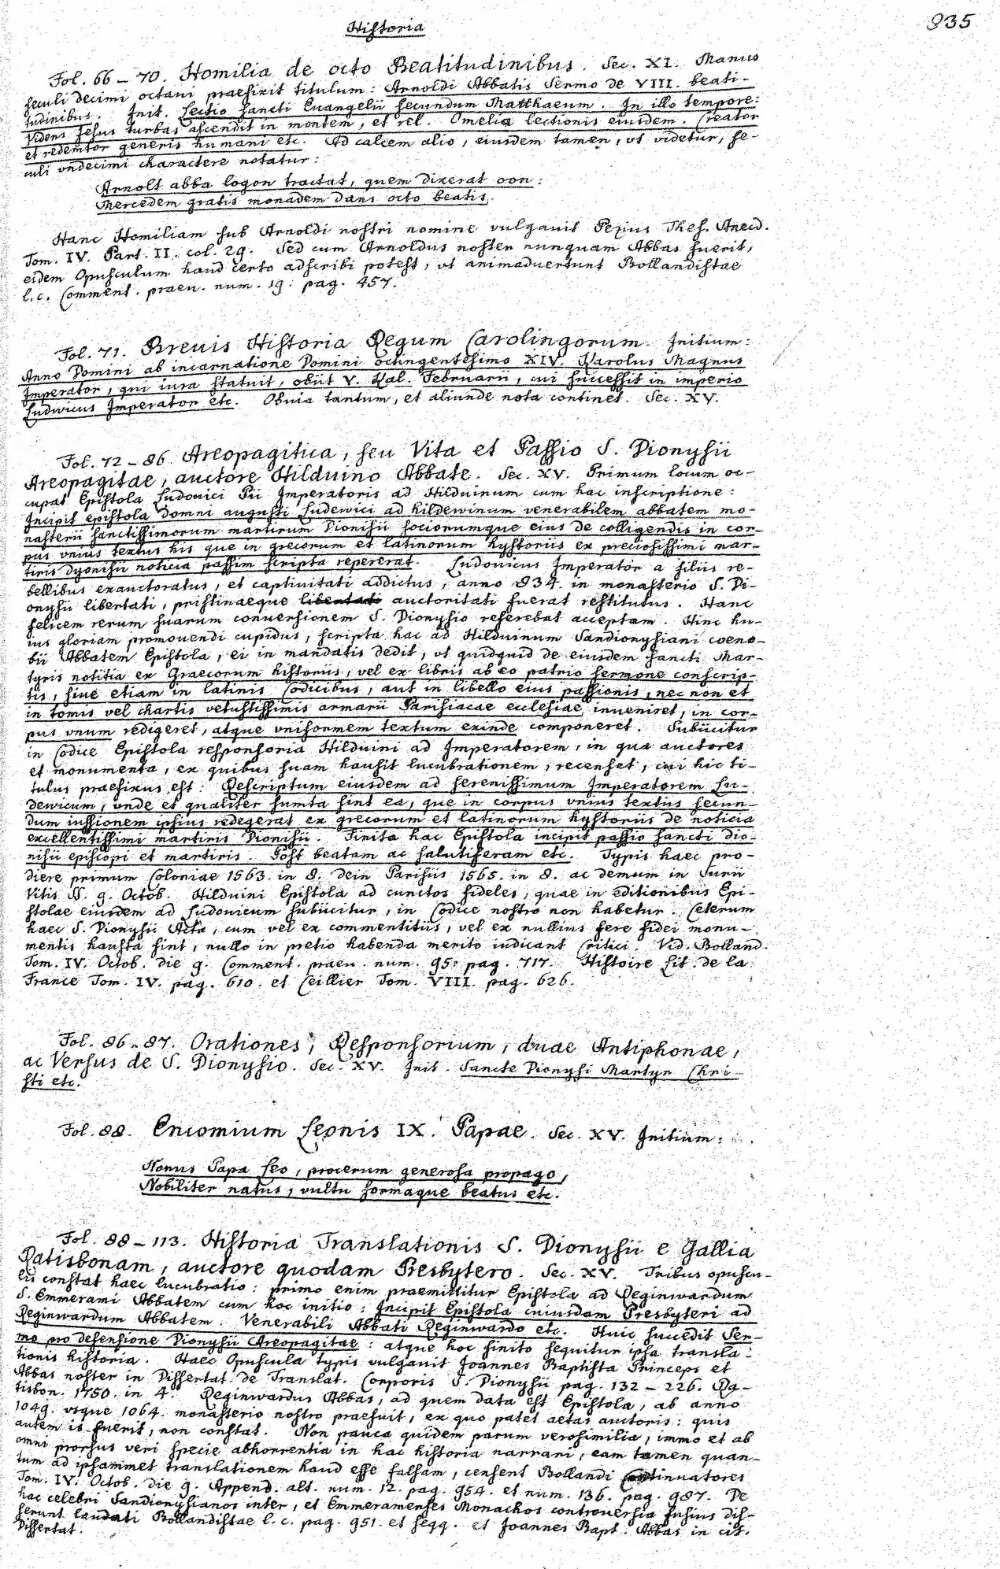 Historia
935
Fol. 66 – 70. Homilia de octo Beatitudinibus. Sec. XI. Manus
seculi decimi octavi praefixit titulum: Arnoldi Abbatis Sermo de VIII. beati-
tudinibus. Init. Lectio sancti Euangelii secundum Matthaeum. In illo tempore:
Videns Jesus turbas ascendit in montem, et rel. Omelia lectionis eiusdem. Creator
et redemtor generis humani etc. Ad calcem alio, eiusdem tamen, vt videtur, se-
culi vndecimi charactere notatur:
Arnolt abba logon tractat, quem dixerat oon:
Mercedem gratis monadem dans octo beatis.
Hanc Homiliam sub Arnoldi nostri nomine vulgauit Pezius Thes. Anecd.
Tom. IV. Part. II. col. 29. Sed cum Arnoldus noster nunquam Abbas fuerit,
eidem Opusculum haud certo adscribi potest, vt animaduertunt Bollandistae
l.c. Comment. praeu. num. 19. pag. 457.
Fol. 71. Breuis Historia Regum Carolingorum. Initium:
Anno Domini ab incarnatione Domini octingentesimo XIV. Karolus Magnus
Imperator, qui iura statuit, obiit V. Kal. Februarii, cui successit in imperio
Ludwicus Imperator etc. Obuia tantum, et aliunde nota continet. Sec. XV.
Fol. 72 – 86. Areopagitica, seu Vita et Passio S. Dionysii
Areopagitae, auctore Hilduino Abbate. Sec. XV. Primum locum oc-
cupat Epistola Ludouici Pii Imperatoris ad Hilduinum cum hac inscriptione:
Incipit epistola domni augusti Ludewici ad hildewinum venerabilem abbatem mo-
nasterii sanctissimorum martirum Dionisii sociorumque eius de colligendis in cor-
pus vnius textus his que in grecorum et latinorum hystoriis ex preciosissimi mar-
tiris dyonisii noticia passim scripta repererat. Ludouicus Imperator a filiis re-
bellibus exauctoratus, et captiuitati addictus, anno 834. in monasterio S. Di-
onysii libertati, pristinaeque libertati auctoritati fuerat restitutus. Hanc
felicem rerum suarum conuersionem S. Dionysio referebat acceptam. Hinc hu-
ius gloriam promouendi cupidus, scripta hac ad Hilduinum Sandionysiani coeno-
bii Abbatem Epistola, ei in mandatis dedit, vt quidquid de eiusdem sancti Mar-
tyris notitia ex Graecorum historiis, vel ex libris ab eo patrio sermone conscrip-
tis, siue etiam in latinis Codicibus, aut in libello eius passionis, nec non et
in tomis vel chartis vetustissimis armarii Parisiacae ecclesiae inueniret, in cor-
pus vnum redigeret, atque vniformem textum exinde componeret. Subiicitur
in Codice Epistola responsoria Hilduini ad Imperatorem, in qua auctores
et monumenta, ex quibus suam hausit lucubrationem, recenset, cui hic ti-
tulus praefixus est: Rescriptum eiusdem ad serenissimum Imperatorem Lu-
dewicum, vnde et qualiter sumta sint ea, que in corpus vnius textus secun-
dum iussionem ipsius redegerat ex grecorum et latinorum hystoriis de noticia
excellentissimi martiris Dionisii. Finita hac Epistola incipit passio sancti dio-
nisii episcopi et martiris. Post beatam ac salutiferam etc. Typis haec pro-
diere primum Coloniae 1563. in 8. dein Parisiis 1565. in 8. ac demum in Surii
Vitis SS. 9. Octob. Hilduini Epistola ad cunctos fideles, quae in editionibus Epi-
stolae eiusdem ad Ludouicum subiicitur, in Codice nostro non habetur. Ceterum
haec S. Dionysii Acta, cum vel ex commentitiis, vel ex nullius fere fidei monu-
mentis hausta sint, nullo in pretio habenda merito iudicant Critici. Vid. Bolland.
Tom. IV. Octob. die 9. Comment. praeu. num. 95. pag. 717. Histoire Lit. de la
France Tom. IV. pag. 610. et Ceillier Tom. VIII. pag. 626.
Fol. 86 – 87. Orationes, Responsorium, duae Antiphonae,
ac Versus de S. Dionysio. Sec. XV. Init. Sancte Dionysi Martyr Chri-
sti etc.
Fol. 88. Encomium Leonis IX. Papae. Sec. XV. Initium:
Nonus Papa Leo, procerum generosa propago,
Nobiliter natus, vultu formaque beatus etc.
Fol. 88 – 113. Historia Translationis S. Dionysii e Gallia
Ratisbonam, auctore quodam Presbytero. Sec. XV. Tribus opuscu-
lis constat haec lucubratio: primo enim praemittitur Epistola ad Reginwardum
S. Emmerami Abbatem cum hoc initio: Incipit Epistola cuiusdam Presbyteri ad
Reginwardum Abbatem. Venerabili Abbati Reginwardo etc. Huic succedit Ser-
mo pro defensione Dionysii Areopagitae: atque hoc finito sequitur ipsa transla-
tionis historia. Haec Opuscula typis vulgauit Joannes Baptista Princeps et
Abbas noster in Dissertat. de Translat. Corporis S. Dionysii pag. 132 – 226. Ra-
tisbon. 1750. in 4. Reginwardus Abbas, ad quem data est Epistola, ab anno
1049. vsque 1064. monasterio nostro praefuit, ex quo patet aetas auctoris: quis
autem is fuerit, non constat. Non pauca quidem parum verosimilia, immo et ab
omni prorsus veri specie abhorrentia in hac historia narrari, eam tamen quan-
tum ad ipsammet translationem haud esse falsam, censent Bollandi Continuatores
Tom. IV. Octob. die 9. Append. alt. num. 12. pag. 954. et num. 136. pag. 987. De
hac celebri Sandionysianos inter, et Emmeramenses Monachos controuersia fusius dis-
serunt laudati Bollandistae l.c. pag. 951. et seqq. et Joannes Bapt. Abbas in cit.
Dissertat.